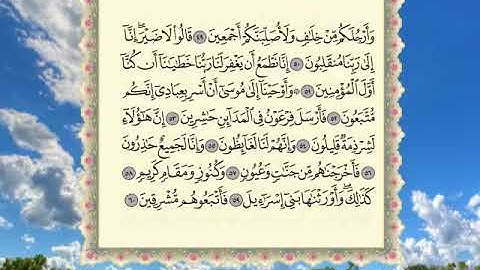 وَأَرْجُلَكُم مِّنْ خِلَٰفٍ وَلَأُصَلِّبَنَّكُمْ أَجْمَعِينَ ٤٩ قَالُوا۟ لَا ضَيْرَ ۖ إِنَّآ
إِلَىٰ رَبِّنَا مُنقَلِبُونَ ٥٠ إِنَّا نَطْمَعُ أَن يَغْفِرَ لَنَا رَبُّنَا خَطَٰيَٰنَآ أَن كُنَّآ
أَوَّلَ ٱلْمُؤْمِنِينَ ٥١ ۞ وَأَوْحَيْنَآ إِلَىٰ مُوسَىٰٓ أَنْ أَسْرِ بِعِبَادِىٓ إِنَّكُم
مُّتَّبَعُونَ ٥٢ فَأَرْسَلَ فِرْعَوْنُ فِى ٱلْمَدَآئِنِ حَٰشِرِينَ ٥٣ إِنَّ هَٰٓؤُلَآءِ
لَشِرْذِمَةٌ قَلِيلُونَ ٥٤ وَإِنَّهُمْ لَنَا لَغَآئِظُونَ ٥٥ وَإِنَّا لَجَمِيعٌ حَٰذِرُونَ
٥٦ فَأَخْرَجْنَٰهُم مِّن جَنَّٰتٍ وَعُيُونٍ ٥٧ وَكُنُوزٍ وَمَقَامٍ كَرِيمٍ ٥٨
كَذَٰلِكَ وَأَوْرَثْنَٰهَا بَنِىٓ إِسْرَٰٓءِيلَ ٥٩ فَأَتْبَعُوهُم مُّشْرِقِينَ ٦٠